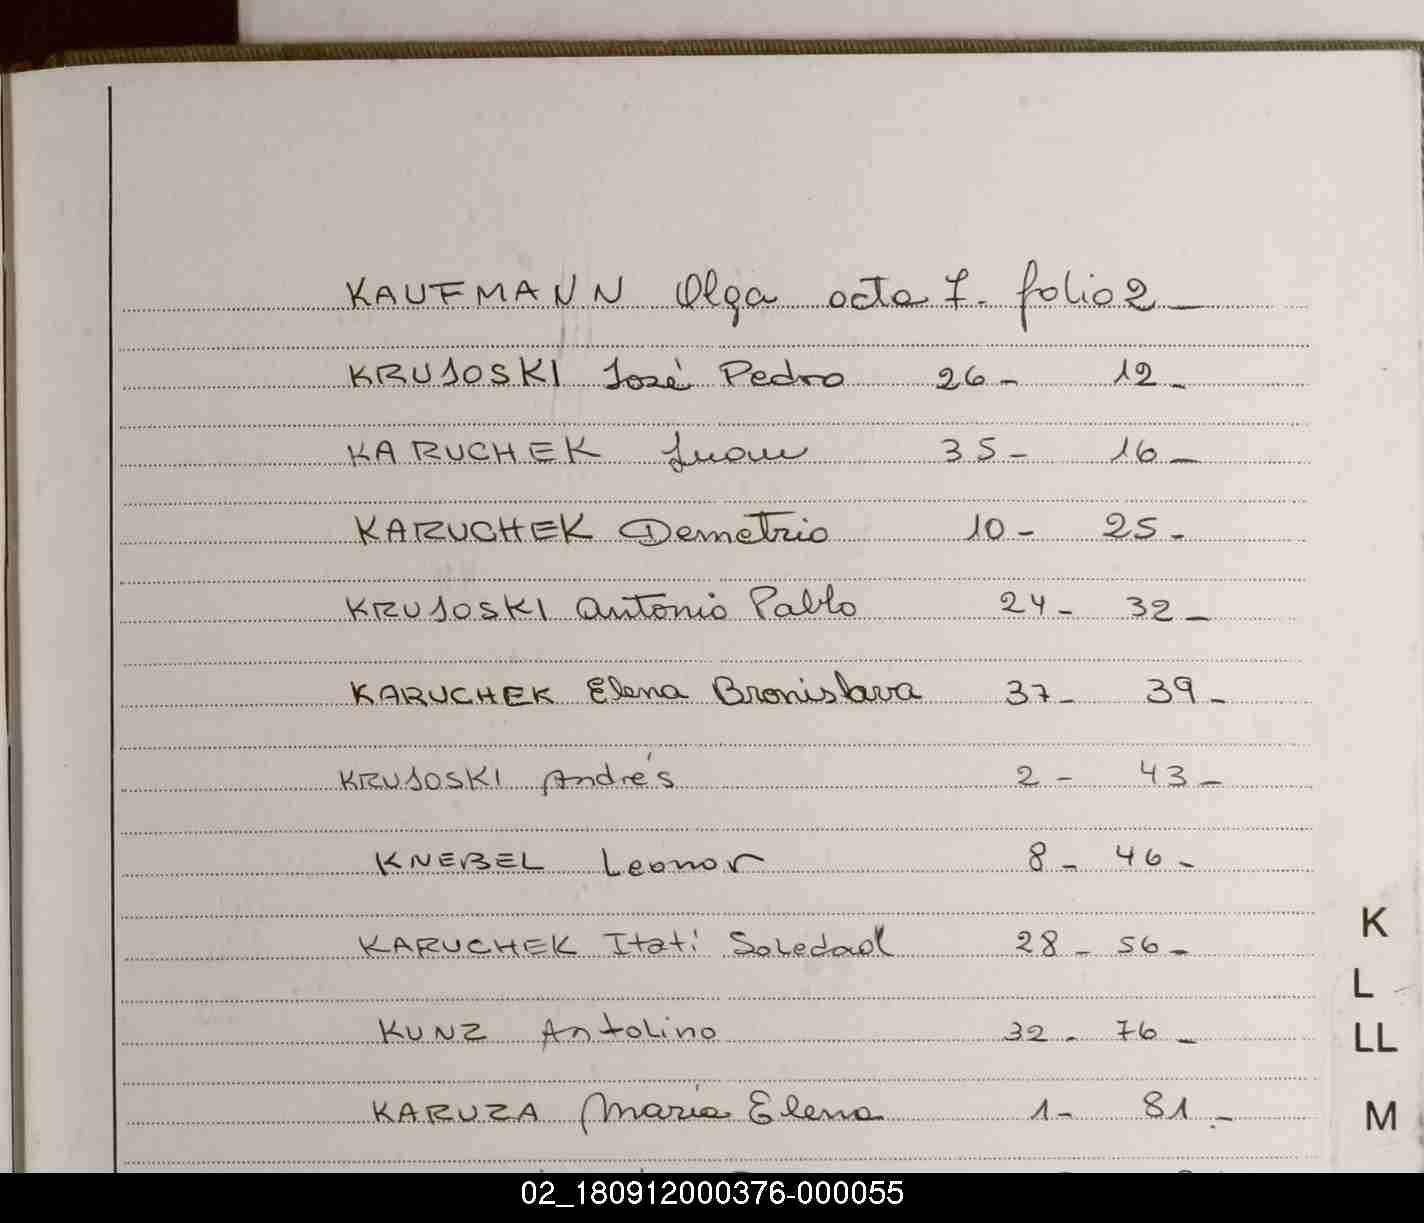 KAUFMANN Olga acta 7. folio 2 _
KRUJOSKI José Pedro 26 - 12 -
KARUCHEK Juan 35 - 16 -
KARUCHEK Demetrio 10 - 25 -
KRUJOSKI Antonio Pablo 24 - 32 -
KARUCHEK Elena Bronislava 37 - 39 -
KRUJOSKI Andrés 2 - 43 -
KNEBEL Leonor 8 - 46 -
KARUCHEK Itatí Soledad 28 - 56 -
KUNZ Antolino 32 - 76 -
KARUZA María Elena 1 - 81 -
K
L
LL
M
02_180912000376-000055